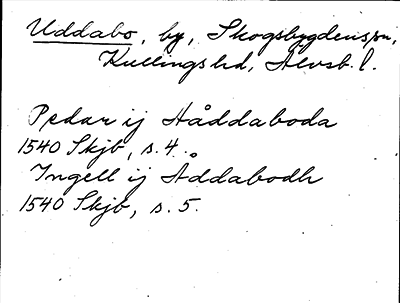 Uddabo, by, Skogsbygdens sn,
Kullings hd, Älvsb. l.
Pedar ij Håddaboda
1540 Skjb, s. 4.
Ingell ij Åddabodh
1540 Skjb, s. 5.